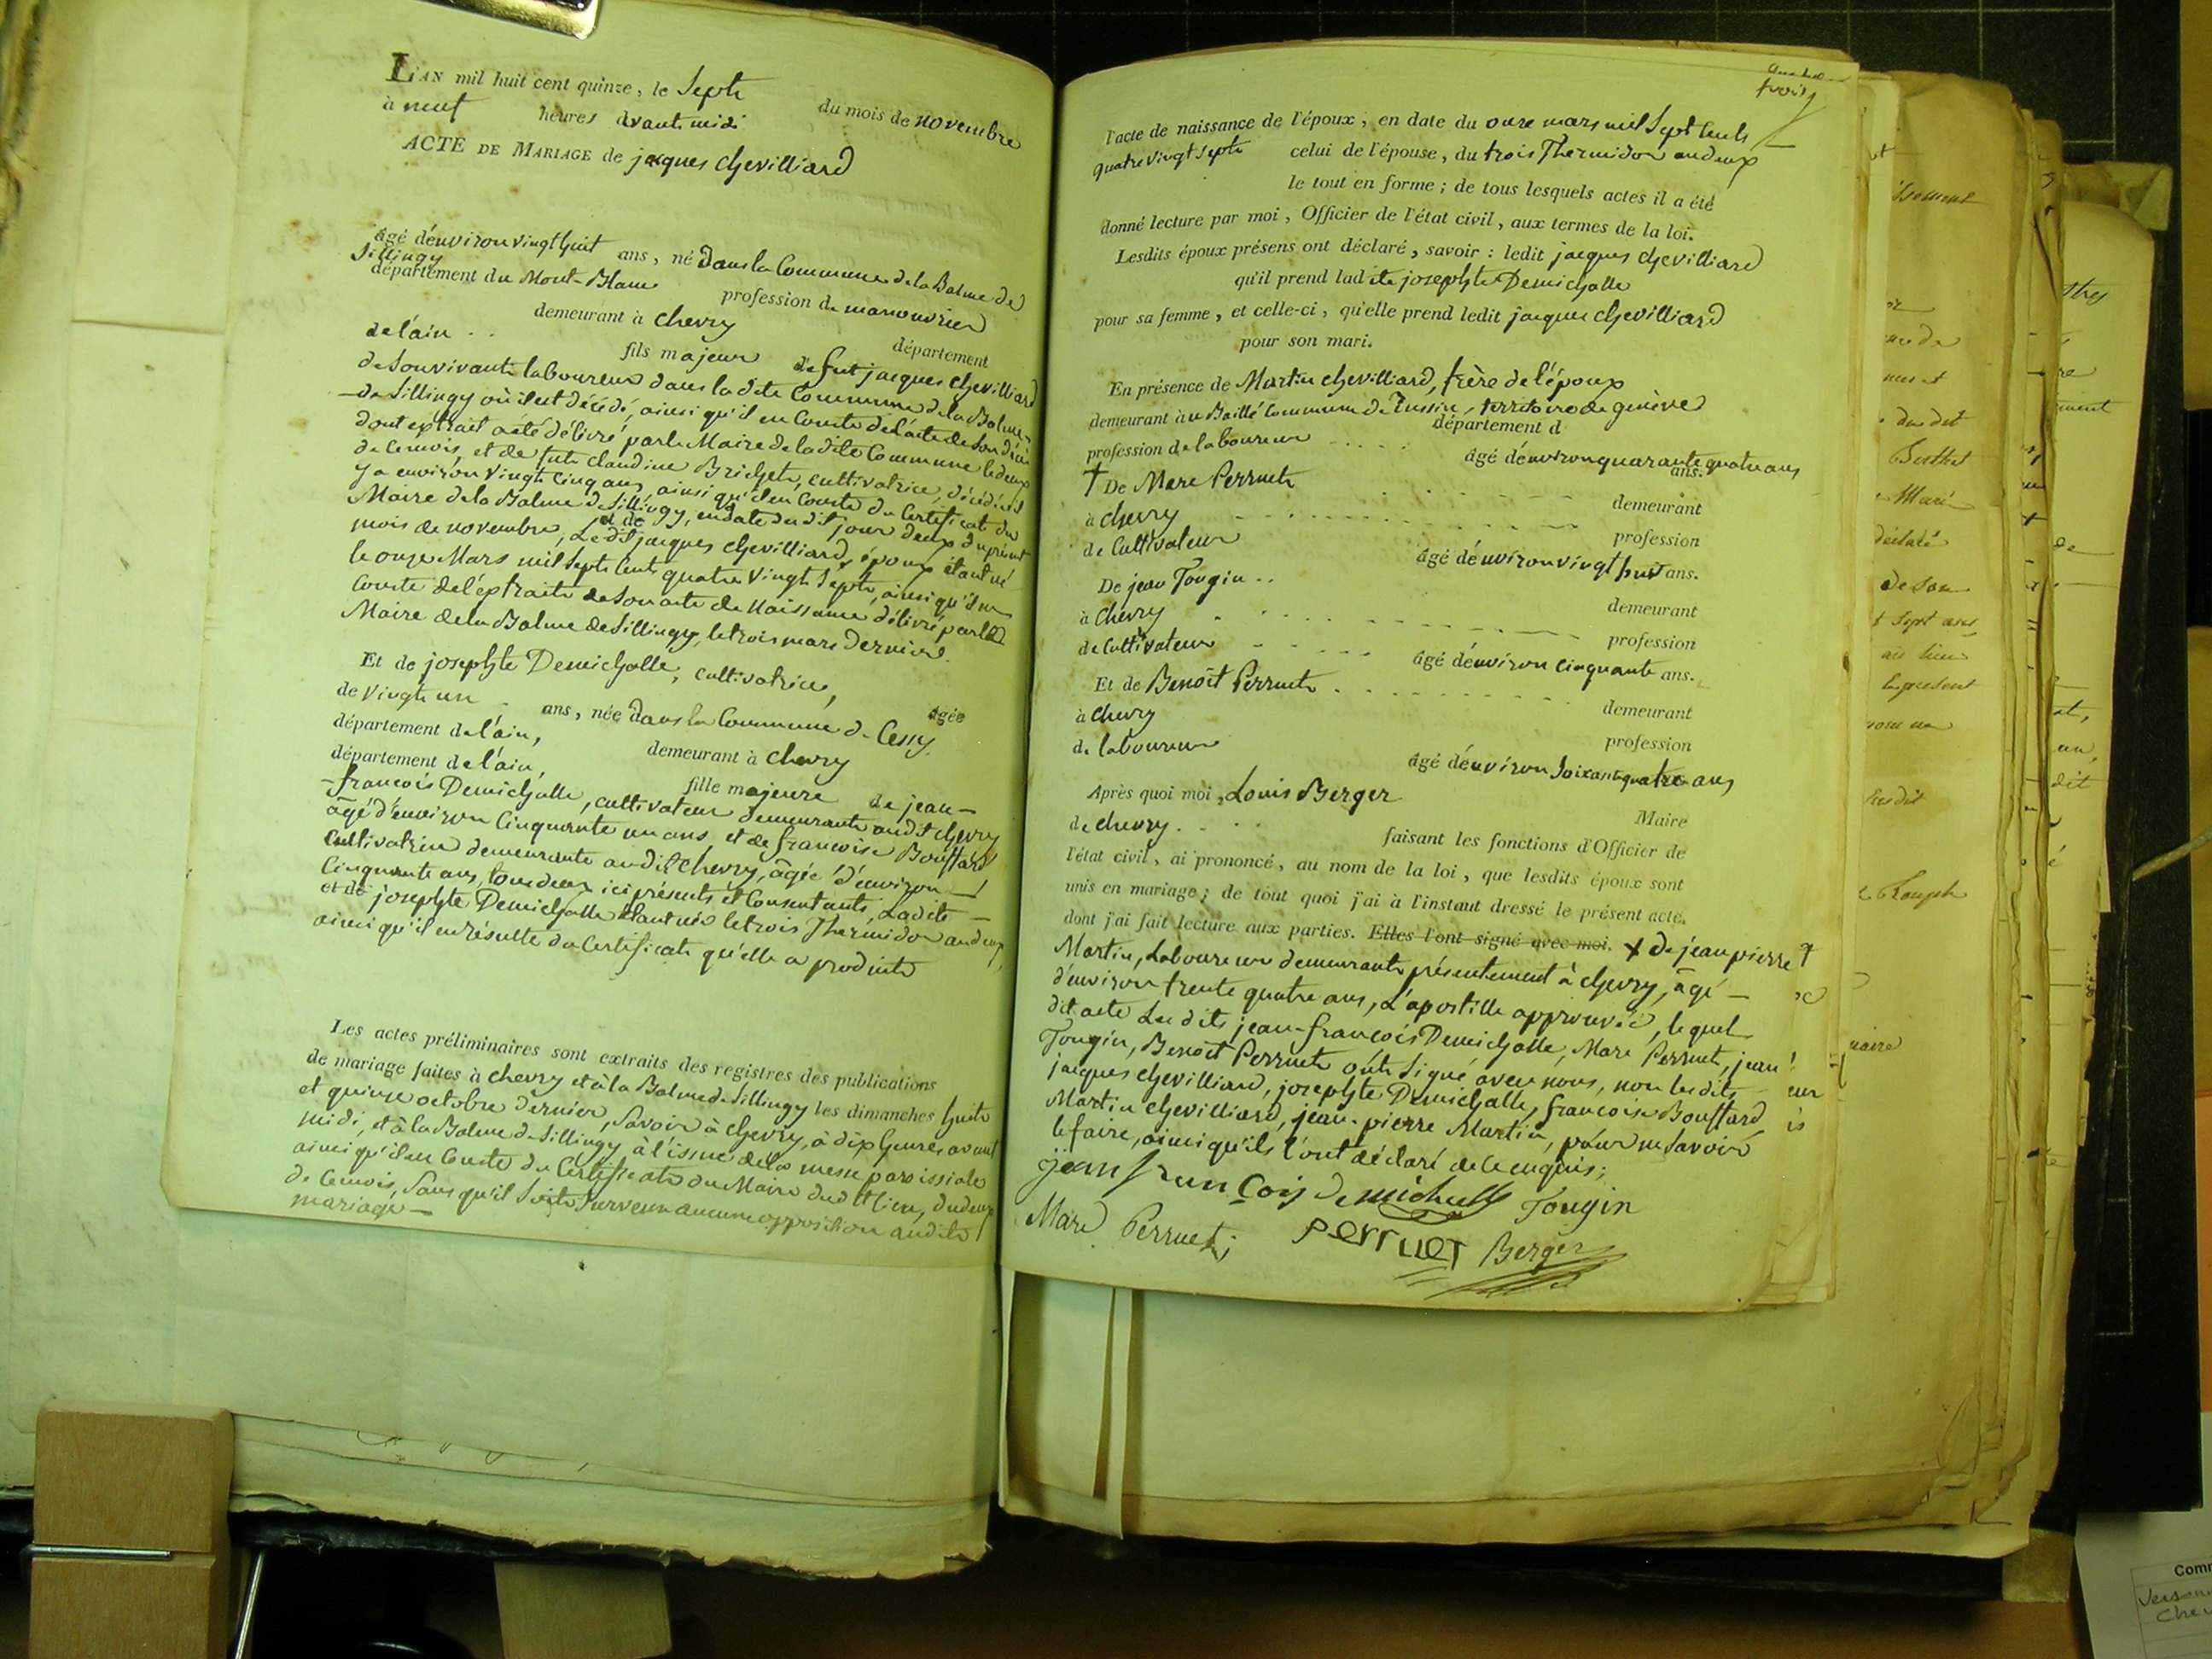 L'AN mil huit cent quinze, le Sept du mois de novembre
à neuf heures avant midi
ACTE DE MARIAGE de jacques chevilliard
âgé d'environ vingt huit ans, né dans la Commune de la Balme de
Sillingy
département du Mont-Blanc profession de manouvrier
demeurant à chevry département
de l'ain . . fils majeur de fut jacques chevilliard
de Son vivant laboureur dans la dite Commune de la Balme
de Sillingy où il est décédé, ainsi qu'il en Conste de l'acte de Son décè
dont extrait a été délivré par le Maire de la dite Commune le deux
de Ce mois, et de fute claudine Bridget, cultivatrice, décédée il
y a environ vingt cinq ans, ainsi qu'il en Conste du Certificat du
Maire de la Balme de Sillingy, en date du dit jour deux du présent
mois de novembre, Le dit jacques chevilliard, époux étant né
le onze Mars mil Sept Cent quatre vingt Sept, ainsi qu'il en
Conste de l'extrait de Son acte de Naissance délivré par le
Maire de la Balme de Sillingy, le trois mars dernier.
Et de josephte Demichalle, cultivatrice, âgée
de vingt un ans, née dans la Commune de Cessy.
département de l'ain, demeurant à chevry
département de l'ain, fille majeure de jean-
-françois Demichalle, cultivateur demeurant audit chevry
âgé d'environ Cinquante un ans et de francoise Bouffard
Cultivatrice demeurante audit chevry, âgée d'environ
Cinquante ans, tous deux ici présents et Consentants, La dite
et de josephte Demichalle étant née le trois Thermidor an deux,
ainsi qu'il en résulte du Certificat qu'elle a produit
Les actes préliminaires sont extraits des registres des publications
de mariage faites à chevry et à la Balme de Sillingy les dimanches huit
et quinze octobre dernier, Savoir à chevry, à dix heures avant
midi, et à la Balme de Sillingy à l'issue de la messe paroissiale
ainsi qu'il en Conste du Certificat du Maire dudit lieu, du deux
de Ce mois, Sans qu'il Soit Survenu aucune opposition audit
mariage -
trois
l'acte de naissance de l'époux, en date du onze mars mil Sept Cents
quatre vingt Sept celui de l'épouse, du trois Thermidor an deux
le tout en forme; de tous lesquels actes il a été
donné lecture par moi, Officier de l'état civil, aux termes de la loi.
Lesdits époux présens ont déclaré, savoir : ledit jacques chevilliard
qu'il prend ladite josephte Demichalle
pour sa femme, et celle-ci, qu'elle prend ledit jacques chevilliard
pour son mari.
En présence de Martin chevilliard, frère de l'époux
demeurant à Commune de Russin, territoire de genève
département d
profession de laboureur . . . . âgé d'environ quarante quatre ans
ans.
† De Marc Perruet demeurant
à chevry profession
de Cultivateur âgé d'environ vingt huit ans.
De jean Fougin . . demeurant
à Chevry profession
de Cultivateur âgé d'environ Cinquante ans.
Et de Benoît Perruet demeurant
à chevry profession
de laboureur âgé d'environ Soixante quatre ans
Après quoi moi, Louis Berger Maire
de chevry . . . faisant les fonctions d'Officier de
l'état civil, ai prononcé, au nom de la loi, que lesdits époux sont
unis en mariage; de tout quoi j'ai à l'instant dressé le présent acte,
dont j'ai fait lecture aux parties. Elles l'ont signé avec moi. † De jean pierre
Martin, Laboureur demeurant présentement à chevry, âgé
d'environ trente quatre ans, L'apostille approuvée, lequel
dit acte Les dits jean-françois Demichalle, Marc Perruet, jean
Fougin, Benoît Perruet ont Signé avec nous, non les dits
jacques chevilliard, josephte Demichalle, francoise Bouffard,
Martin chevilliard, jean-pierre Martin, pour ne Savoir
le faire, ainsi qu'ils l'ont déclaré de Ce enquis;
jean françois Demichalle Fougin
Marc Perruet; perruet Berger